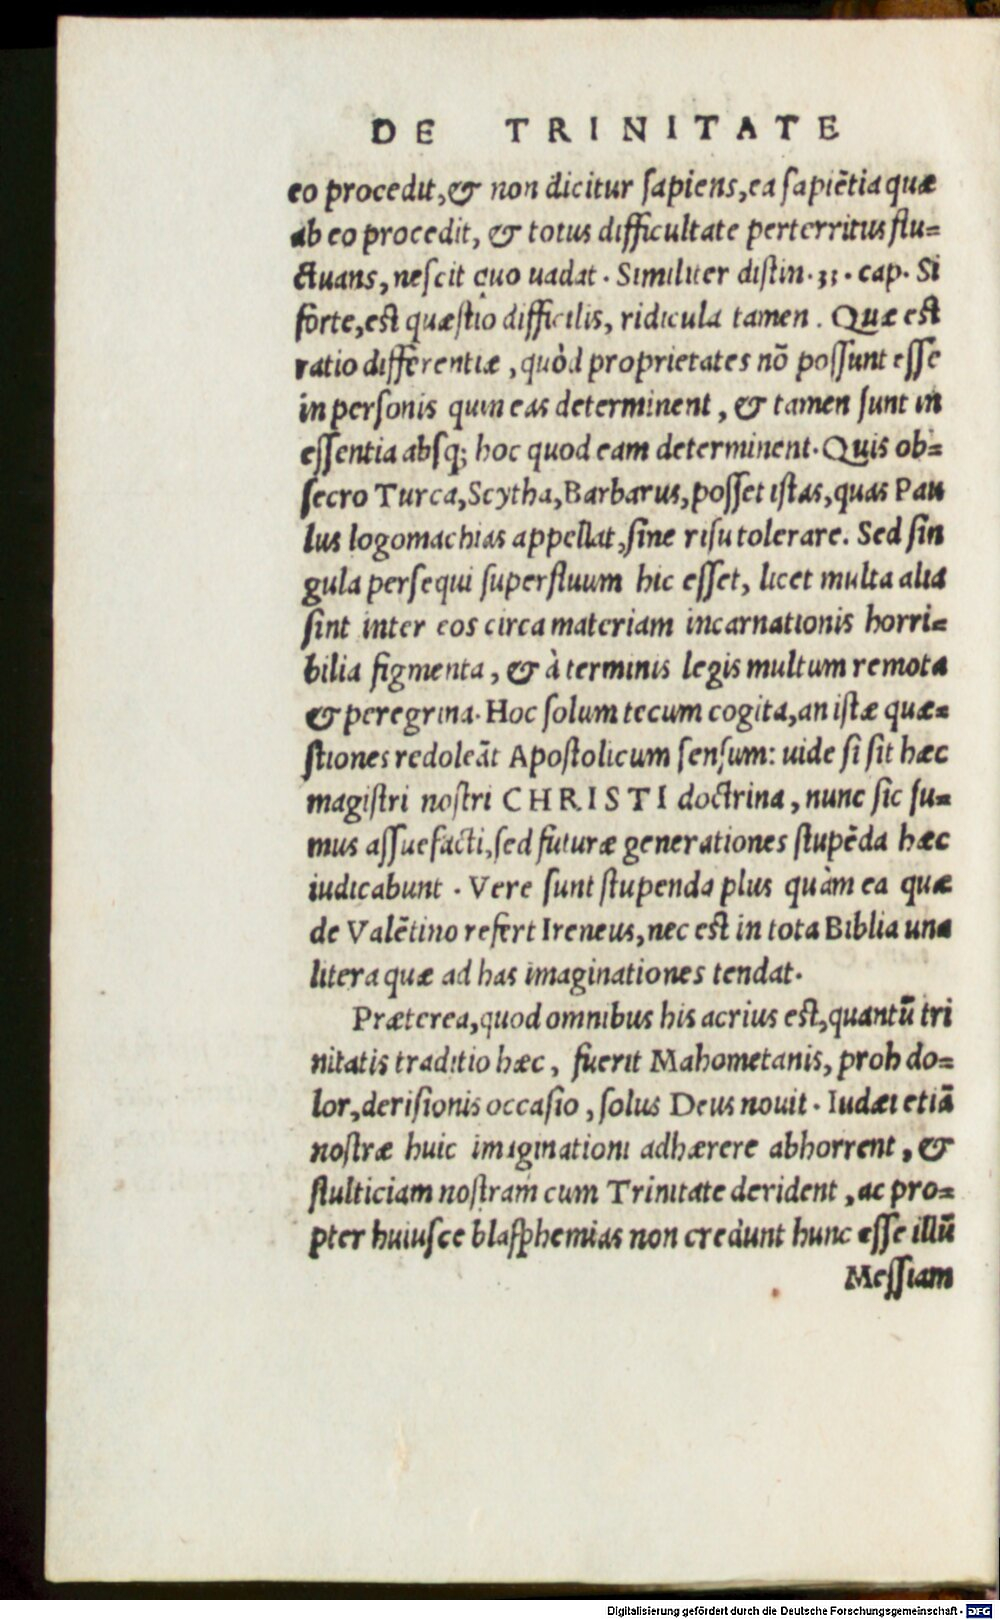 DE TRINITATE
eo procedit, & non dicitur ſapiens, ea ſapiētia quæ
ab eo procedit, & totus difficultate perterritus flu=
ctuans, neſcit quo uadat. Similiter diſtin. 33. cap. Si
forte, est quæſtio difficilis, ridicula tamen. Quæ est
ratio differentiæ, quòd proprietates nō poſſunt eſſe
in perſonis quin eas determinent, & tamen ſunt in
eſſentia abſq; hoc quod eam determinent. Quis ob=
ſecro Turca, Scytha, Barbarus, poſſet iſtas, quas Pau
lus logomachias appellat, ſine riſu tolerare. Sed ſin
gula perſequi ſuperfluum hic eſſet, licet multa alia
ſint inter eos circa materiam incarnationis horri=
bilia figmenta, & à terminis legis multum remota
& peregrina. Hoc ſolum tecum cogita, an iſtæ quæ=
ſtiones redoleāt Apoſtolicum ſenſum: uide ſi ſit hæc
magiſtri noſtri CHRISTI doctrina, nunc ſic ſu=
mus aſſuefacti, ſed futuræ generationes ſtupēda hæc
iudicabunt. Vere ſunt ſtupenda plus quàm ea quæ
de Valētino refert Ireneus, nec est in tota Biblia una
litera quæ ad has imaginationes tendat.
Præterea, quod omnibus his acrius est, quantū tri
nitatis traditio hæc, fuerit Mahometanis, proh do=
lor, deriſionis occaſio, ſolus Deus nouit. Iudæi etiā
noſtræ huic imaginationi adhærere abhorrent, &
ſtulticiam noſtram cum Trinitate derident, ac pro=
pter huiuſce blaſphemias non credunt hunc eſſe illū
Meſſiam
Digitalisierung gefördert durch die Deutsche Forschungsgemeinschaft - DFG